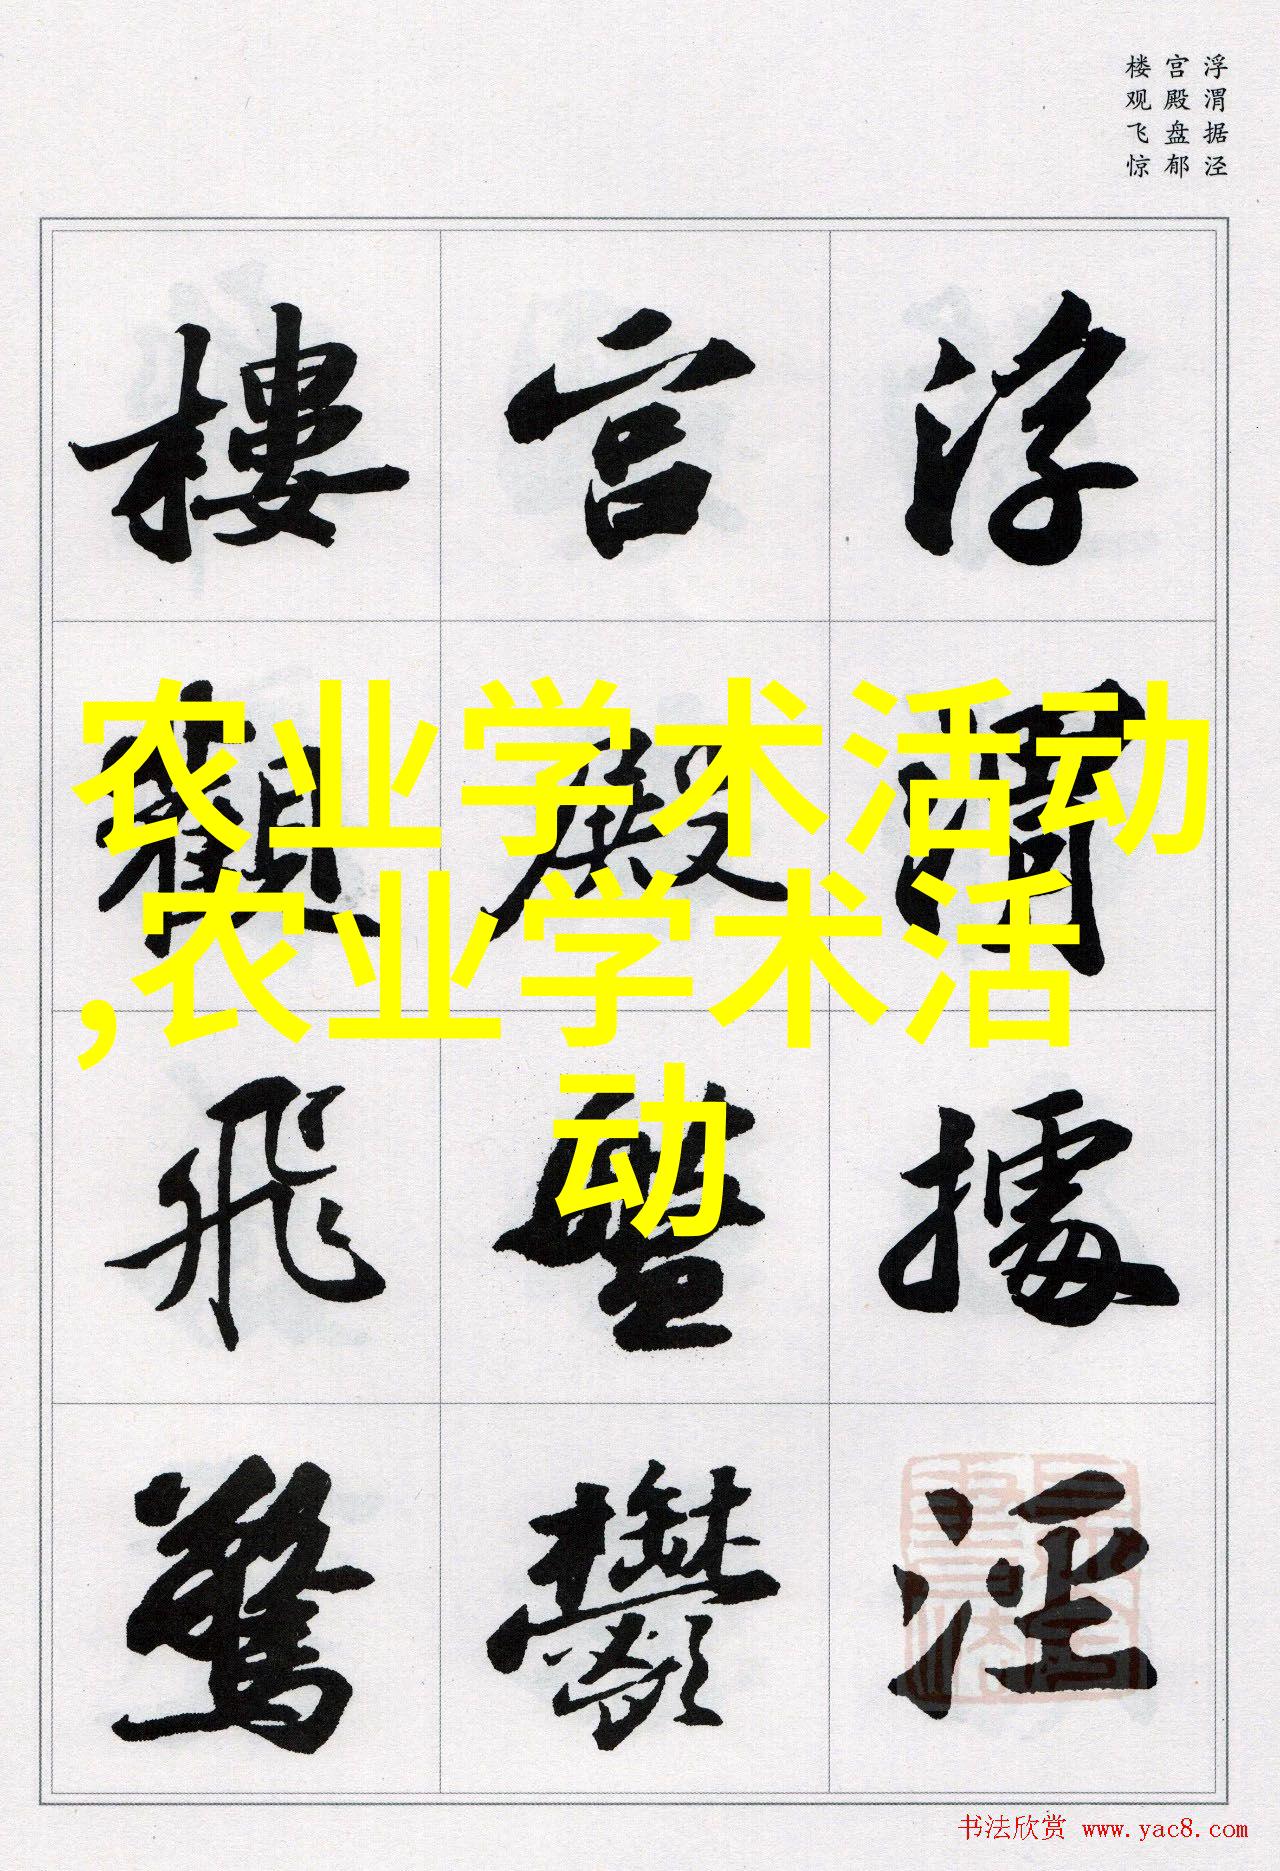 浮渭据泾
宫殿盘郁
楼观飞惊
浮渭據涇
宮殿盤鬱
樓觀飛驚
农业学术活动
,农业学术活
动
书法欣赏 www.yac8.com